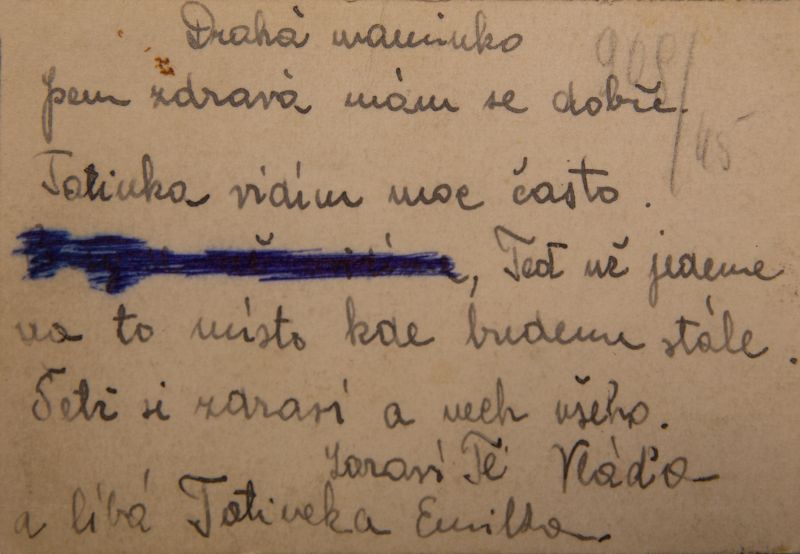 Drahá maminko
968/45
Jsem zdravá mám se dobře.
Tatínka vidím moc často.
, Teď už jedeme
na to místo kde budem stále.
Šetř si zdraví a nech všeho.
Zdraví Tě Vláďa
a líbá Tatínek a Emilka.